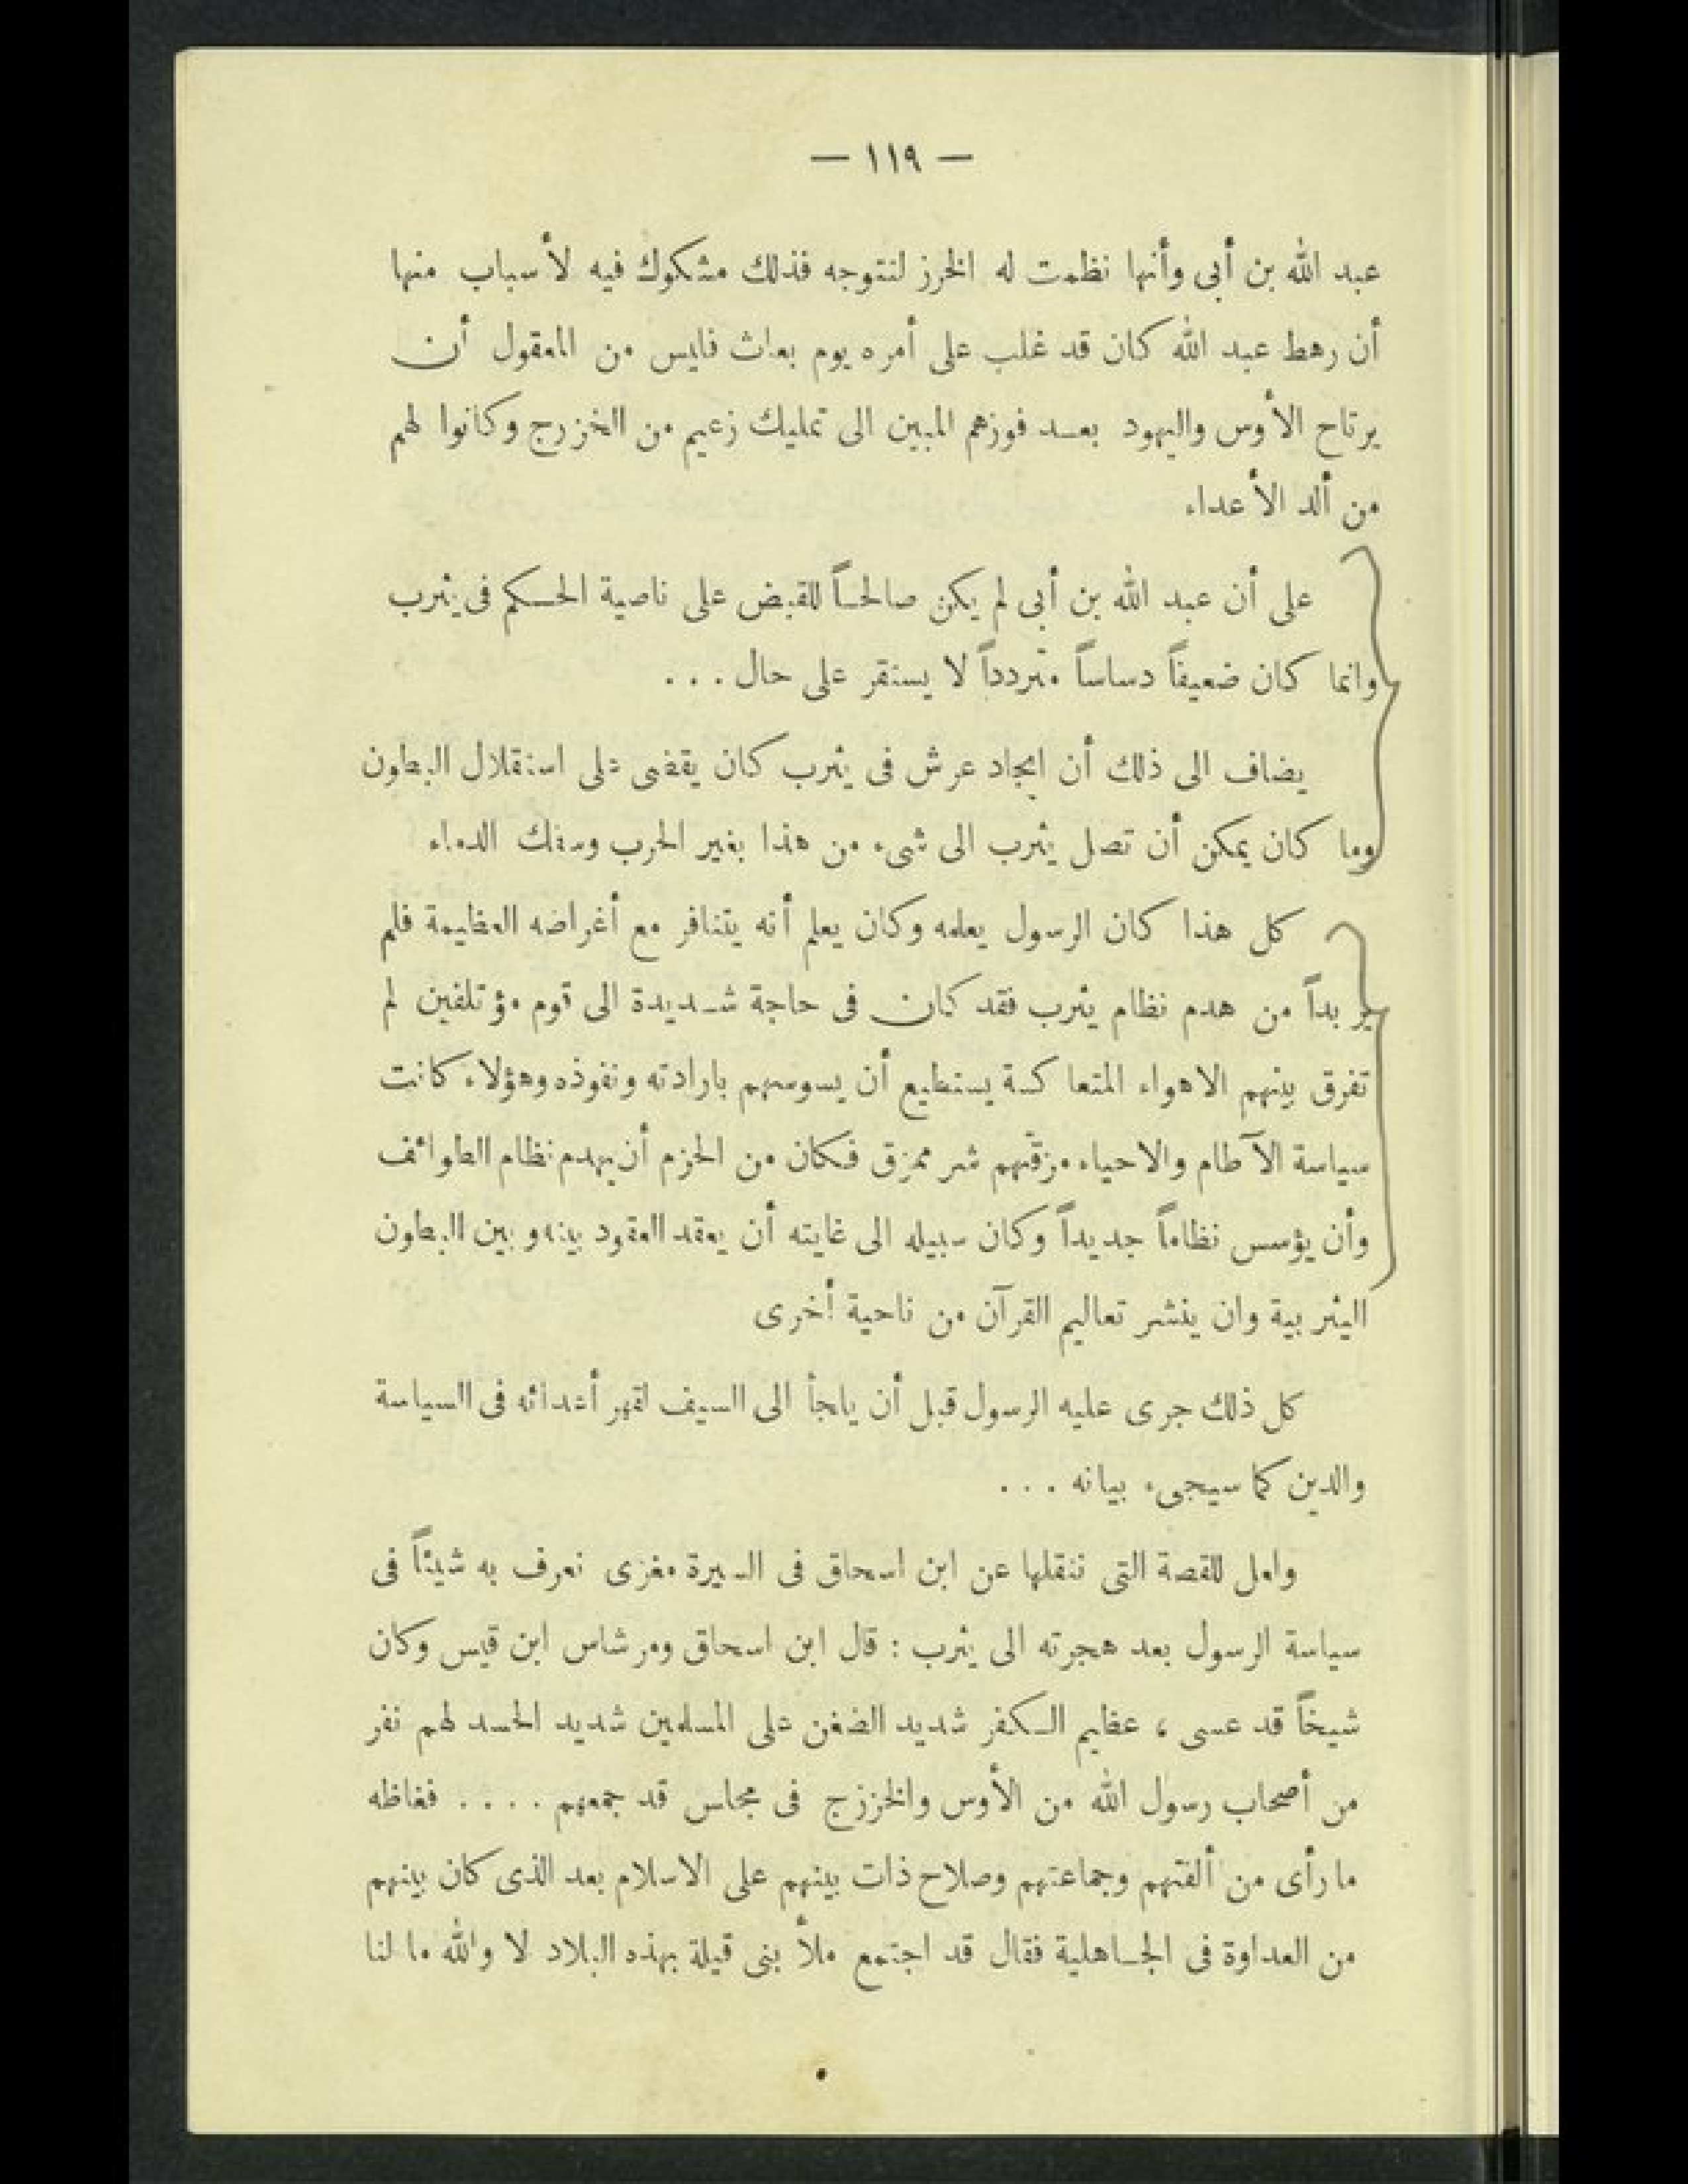 — ١١٩ —
عبد الله بن أبى وأنها نظمت له الخرز لنتوجه فذلك مشكوك فيه لأسباب منها
أن رهط عبد الله كان قد غلب على أمره يوم بعاث فليس من المعقول أن
يرتاح الأوس واليهود بعد فوزهم المبين الى تمليك زعيم من الخزرج وكانوا لهم
من ألد الأعداء
على أن عبد الله بن أبى لم يكن صالحاً للقبض على ناصية الحكم فى يثرب
وانما كان ضعيفاً دساساً متردداً لا يستقر على حال . . .
يضاف الى ذلك أن ايجاد عرش فى يثرب كان يقضى على استقلال البطون
وما كان يمكن أن تصل يثرب الى شىء من هذا بغير الحرب وسفك الدماء
كل هذا كان الرسول يعلمه وكان يعلم أنه يتنافر مع أغراضه العظيمة فلم
ير بداً من هدم نظام يثرب فقد كان فى حاجة شديدة الى قوم مؤتلفين لم
تفرق بينهم الاهواء المتعاكسة يستطيع أن يسوسهم بارادته ونفوذه وهؤلاء كانت
سياسة الآطام والاحياء مزقتهم شر ممزق فكان من الحزم أن يهدم نظام الطوائف
وأن يؤسس نظاماً جديداً وكان سبيله الى غايته أن يعقد العقود بينه وبين البطون
اليثربية وان ينشر تعاليم القرآن من ناحية أخرى
كل ذلك جرى عليه الرسول قبل أن يلجأ الى السيف لقهر أعدائه فى السياسة
والدين كما سيجىء بيانه . . .
ولعل للقصة التى ننقلها عن ابن اسحاق فى السيرة مغزى نعرف به شيئاً فى
سياسة الرسول بعد هجرته الى يثرب : قال ابن اسحاق ومر شاس ابن قيس وكان
شيخاً قد عسى ، عظيم الكفر شديد الضغن على المسلمين شديد الحسد لهم نفر
من أصحاب رسول الله من الأوس والخزرج فى مجلس قد جمعهم . . . . فغاظه
ما رأى من ألفتهم وجماعتهم وصلاح ذات بينهم على الاسلام بعد الذى كان بينهم
من العداوة فى الجاهلية فقال قد اجتمع ملأ بنى قيلة بهذه البلاد لا والله ما لنا